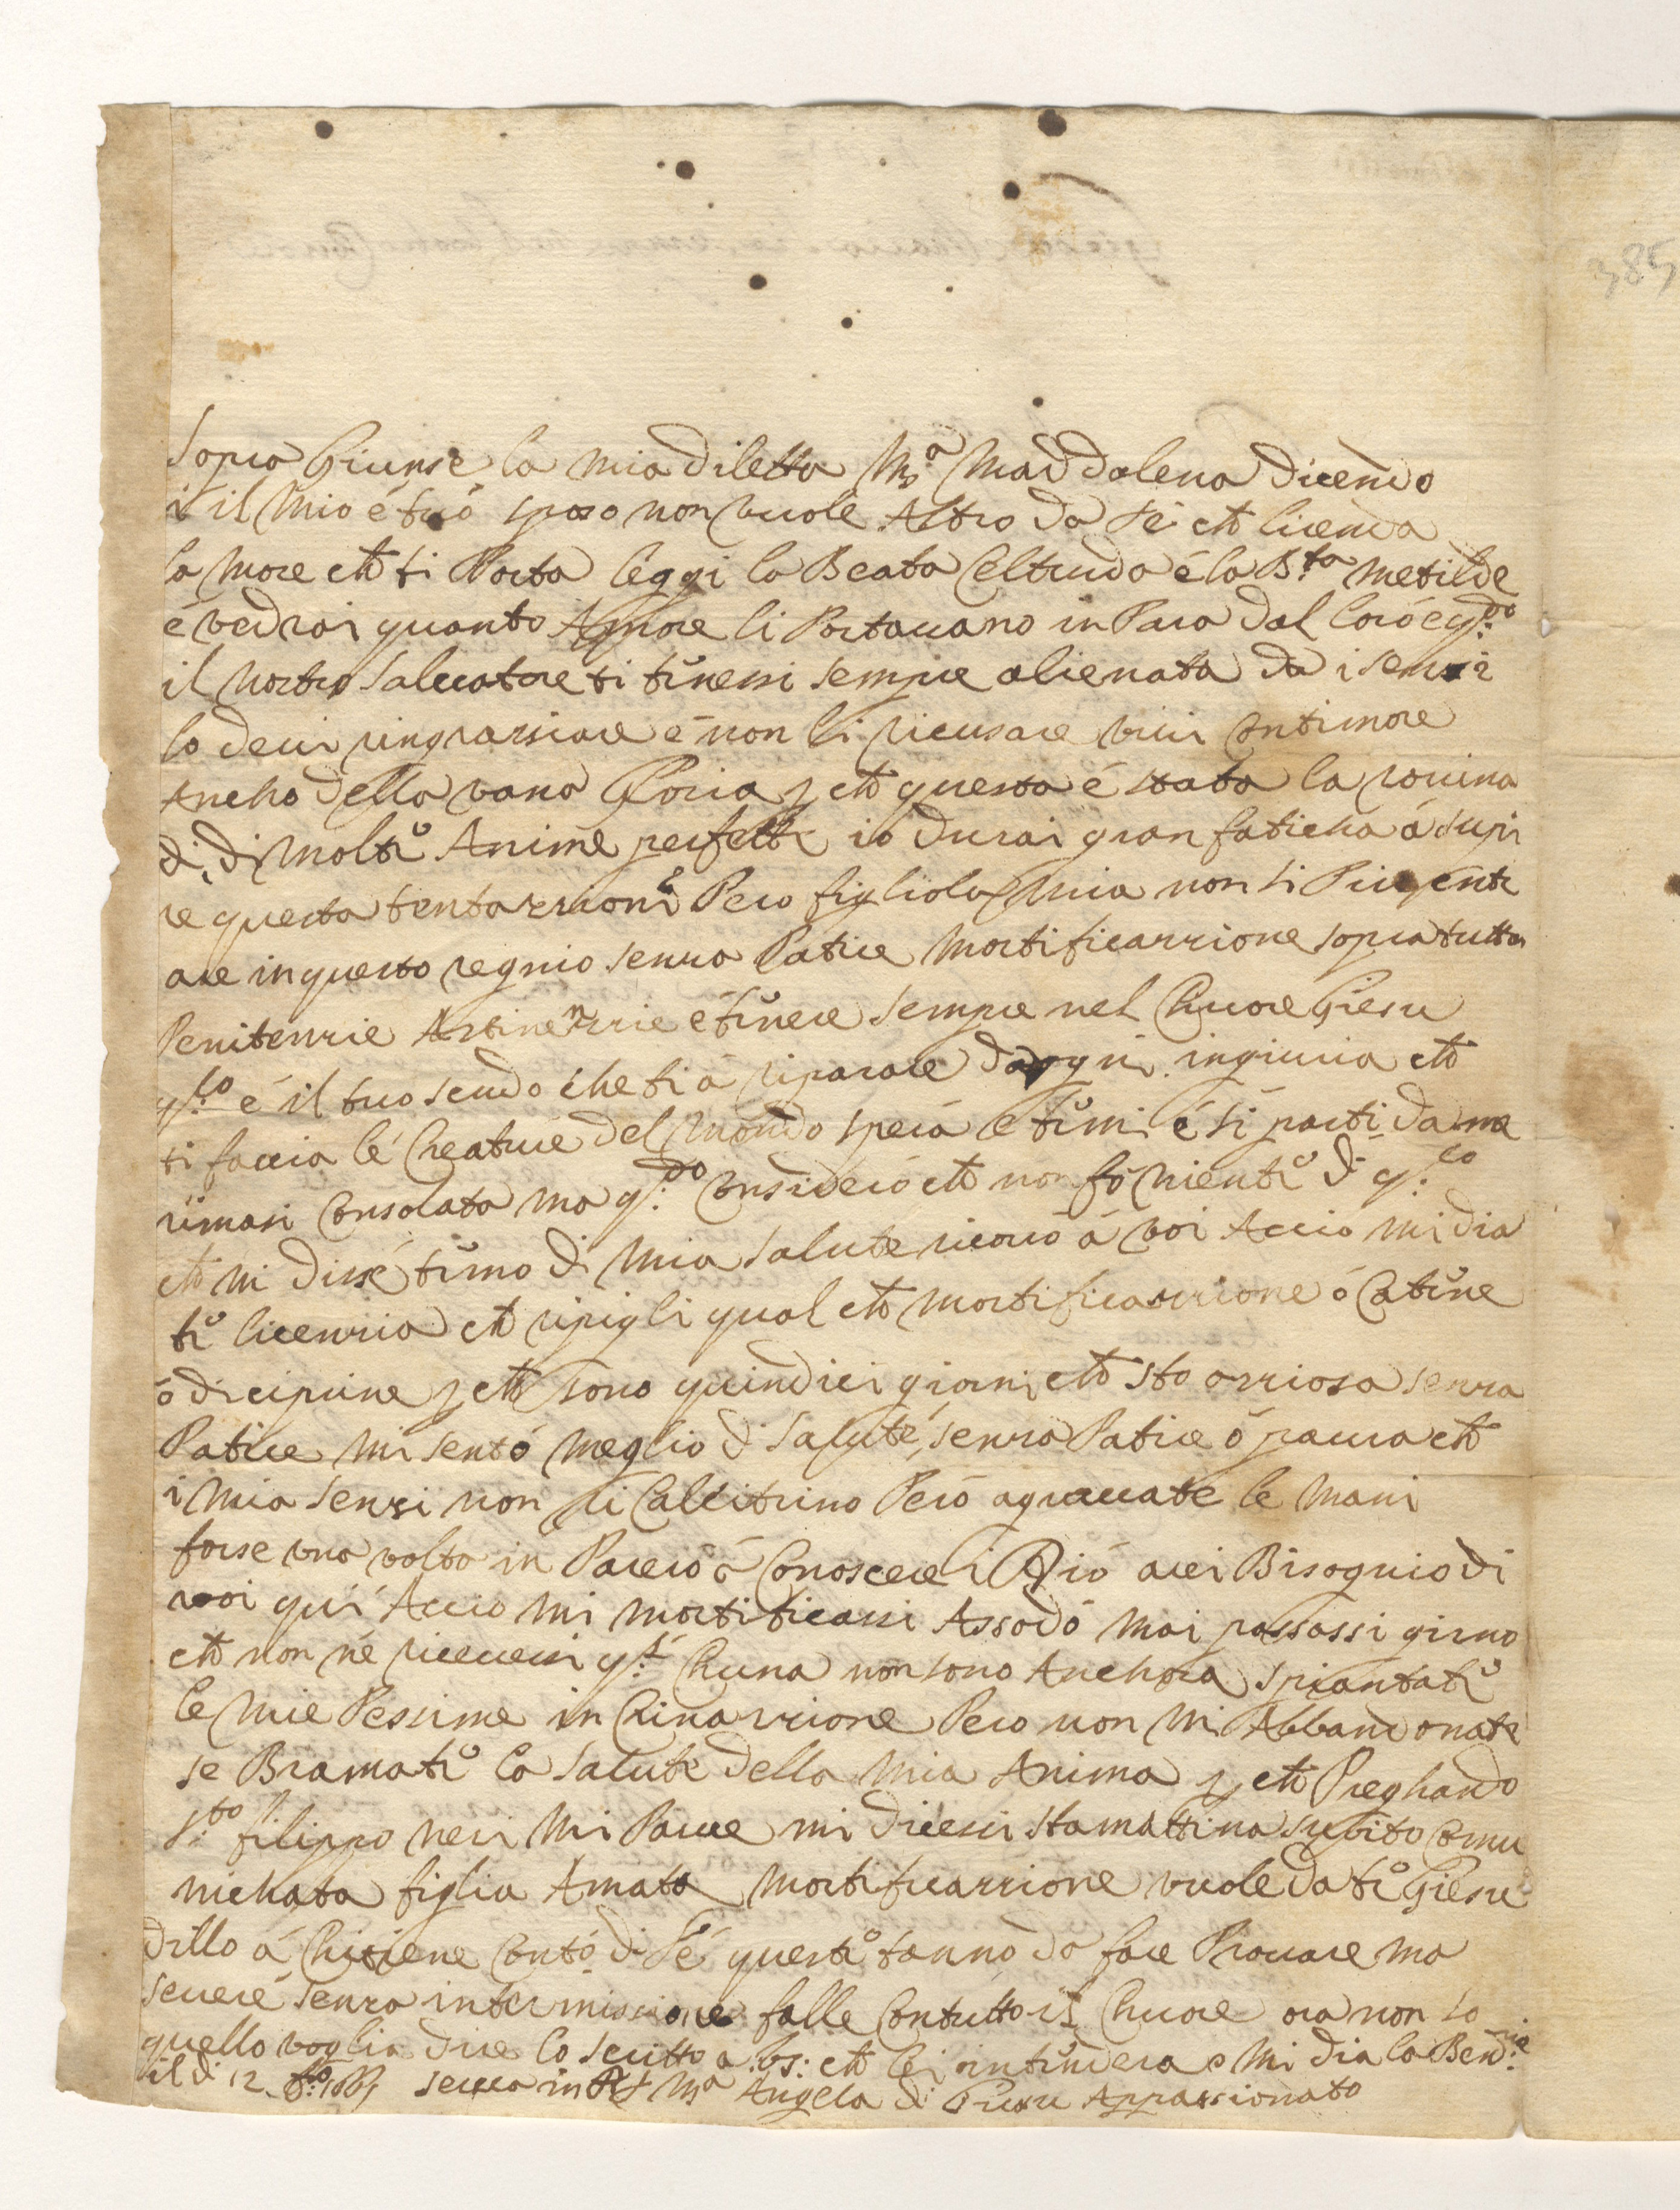 385
Sopra Giunse la mia diletta M.ª Maddalena dicendo
il mio é tuó sposo non vuole Altro da té ch̄ licenda
la more ch̄ ti Porta leggi la Beata Celtruda é la B.ta Metilde
é vedrai quanto Amore li Portavano in Para dal loró e q.do
il nostro Salvatore ti tenessi sempre alienata da i sensi
lo devi ringrarsiare é non li ricusare vivi contimore
Ancho della vana Gloria p ch̄ questa é stata la rovina
di di molte Anime perfette io durai gran faticha á Supi
re questa tentazzione Pero figliola mia non si Puo entr
are in questo regnio senza Patire Mortificazzione sopra tutto
Penitenzie Astinenzie é tenere sempre nel Chuore Giesu
q.lo é il tuo scudo che ti á riparare dogni ingiuria ch̄
ti faccia lé Creature del Mondo sperá é temi é si parti da me
rimasi Consolata ma q.do Considero ch̄ non fó niente di q.lo
ch̄ mi dissé temo di mia Salute ricorro á voi Accio mi dia
te licenzia ch̄ ripigli qual ch̄ Mortificazzione ó Catene
ó disciprine p ch̄ sono quindici giorni ch̄ sto ozziosa senza
Patire mi sentó meglio di Saluté, senza Patire ó paura ch̄
i mia sensi non si Calcitrino Peró agravate le mani
forse una volta in Pareró á Conoscere i Dió arei Bisognio di
voi qui Accio mi mortificassi Assodó mai passassi girno
ch̄ non né ricevessi q.l Chuna non sono Anchora Spiantate
le mie Pessime in Chinazzione Pero non mi Abbandonate
se Bramate la Salute della mia Anima p ch̄ Preghando
S.to filippo neri mi Parve mi dicessi Stamattina Subito Comu
nichata figlia Amata mortificazzione vuole da te Giesu
dillo á Chi tiene Contó di Té queste tanno da fare Provare ma
severé senza intermissione falle Contutto il Chuore ora non so
quello voglia dire lo scritto a vs: ch̄ lei intendera e mi dia la Bend.ne
il di 12 serva in M.ª Angela di Giesu Appassionato